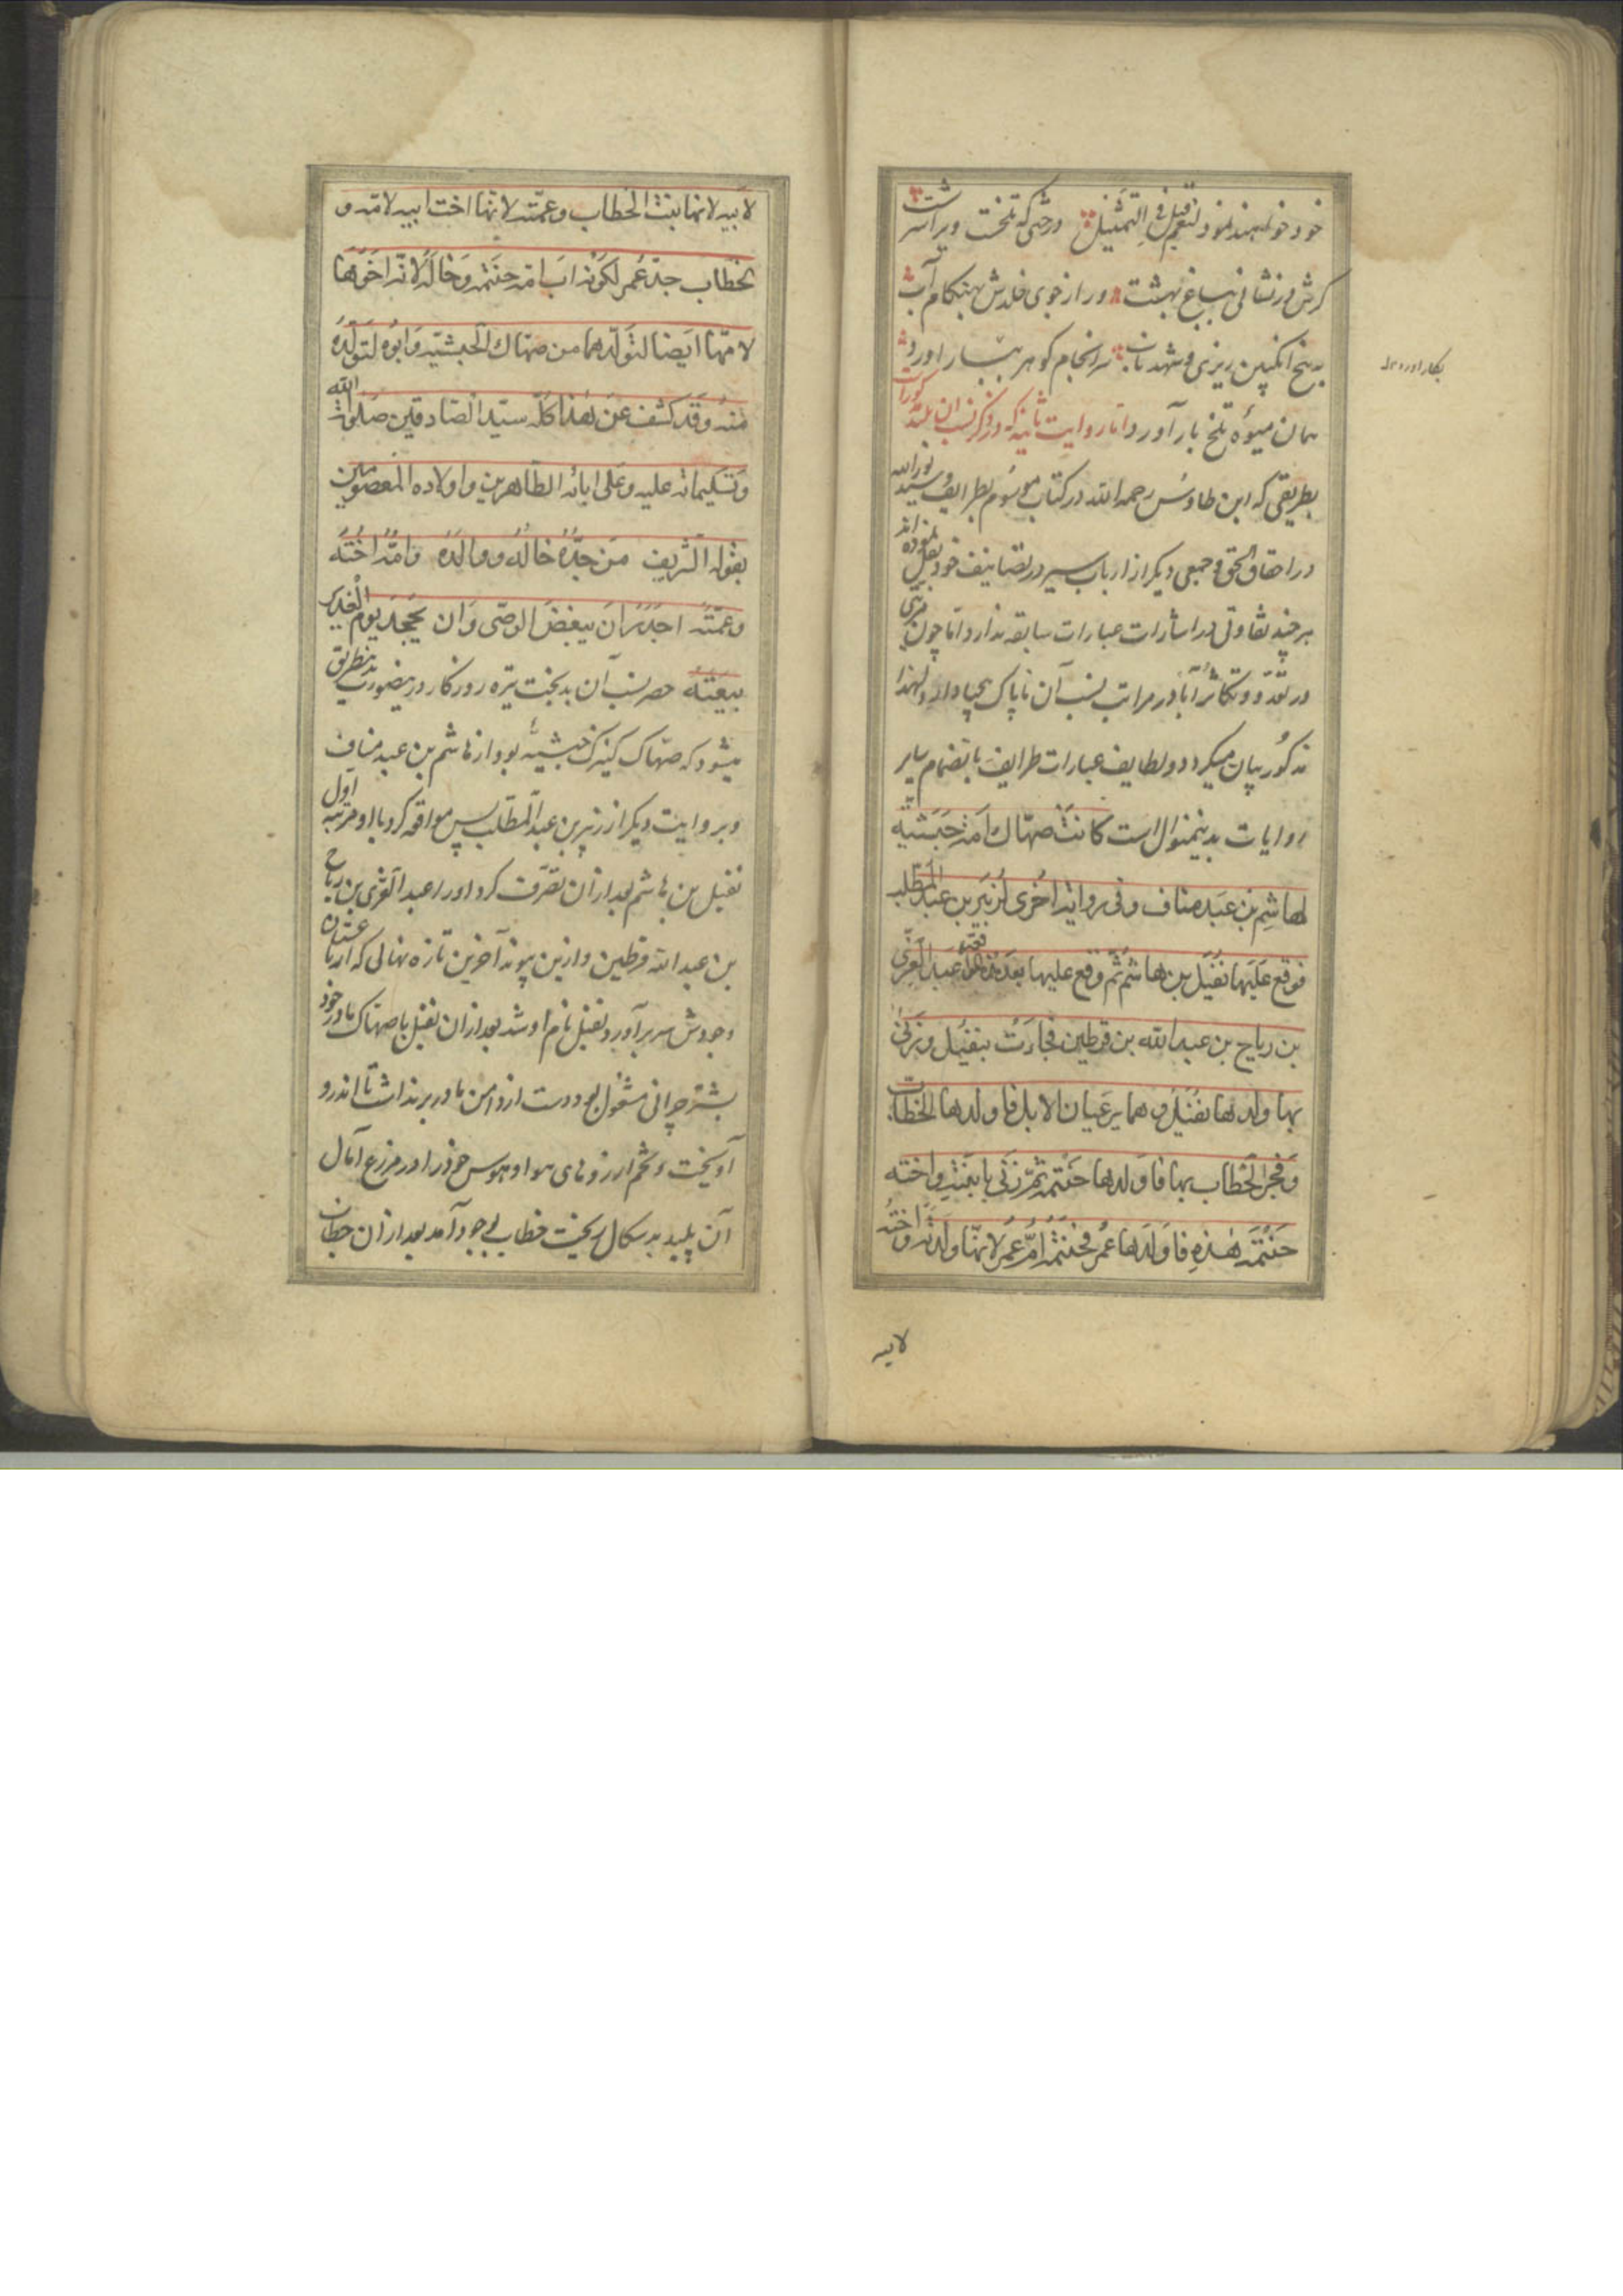 خود خواهند نمود لنعم قیل فی التمثیل درختی که تلخست ویرا سرشت
گرش در نشانی بباغ بهشت ور از جوی خلدش بهنگام آب
به بیخ انگبین ریزی و شهد ناب سرانجام گوهر ببار آورد
همان میوه تلخ بار آورد و اما روایت ثانیه که در ذکر نسب ان
بطریقی که ابن طاوس رحمه الله در کتاب موسوم بطرایف و سید نورالله
در احقاق الحق و جمعی دیگر از ارباب سیر در تصانیف خود نقل نموده اند
هر چند تفاوتی در اشارات عبارات سابقه ندارد اما چون مزیتی
در تعدد و تکاثر آبا در مراتب نسب آن ناپاک بیحیا دارد لهذا
مذکور بیان میکردد و لطایف عبارات طرایف بانضمام سایر
روایات بدینمنوال است کانت صهاک امة حبشیة
لهاشم بن عبد مناف و فی روایة اخری لزبیر بن عبد المطلب
فوقع علیها نفیل بن هاشم ثم وقع علیها بعد عبد العزی
بن ریاح بن عبد الله بن قرطین فجاءت بنفیل و
بها ولدها نفیل و هما یرعیان الابل فاولدها الخطاب
و فجر الخطاب بها فاولدها حنتمة ثم زنی بابنته و اخته
حنتمة هذه فاولدها عمر فحنتمة ام عمر لانها ولدته و اخته
لابیه
بکار آورد
لابیه لانها بنت الخطاب و عمته لانها اخت ابیه لامه و
الخطاب جد عمر لکونه اب امه حنتمة و خاله لانه اخوها
لامها ایضا لتولدهما من صهاک الحبشیة و ابوه لتولده
منه و قد کشف عن هذا کله سید الصادقین صلوات الله
و تسلیماته علیه و علی ابائه الطاهرین و اولاده المعصومین
بقوله الشریف من جده خاله و والده و امه اخته
و عمته اجدر ان یبغض الوصی و ان یجحد یوم الغدیر
بیعته حصر نسب آن بدبخت تیره روزکار درینصورت بدینطریق
میشود که صهاک کنیزک حبشیه بود از هاشم بن عبد مناف
و بروایت دیکر از زبیر بن عبد المطلب پس مواقعه کرد با او مرتبه اول
نفیل بن هاشم بعد ازان تصرف کرد اورا عبد العزی بن ریاح
بن عبد الله قرطین و ازین پیوند آخرین تازه نهالی که از
وجودش سر برآورد نفیل نام او شد بعد ازان نفیل با صهاک مادر خود
بشتر چرانی مشغول بود دست از دامن مادر بر نداشت تا اندرو
آویخت و تخم ارزوهای هوا و هوس خود را در مزرع آمال
آن پلید بد سکال ریخت خطاب بوجود آمد بعد ازان خطاب